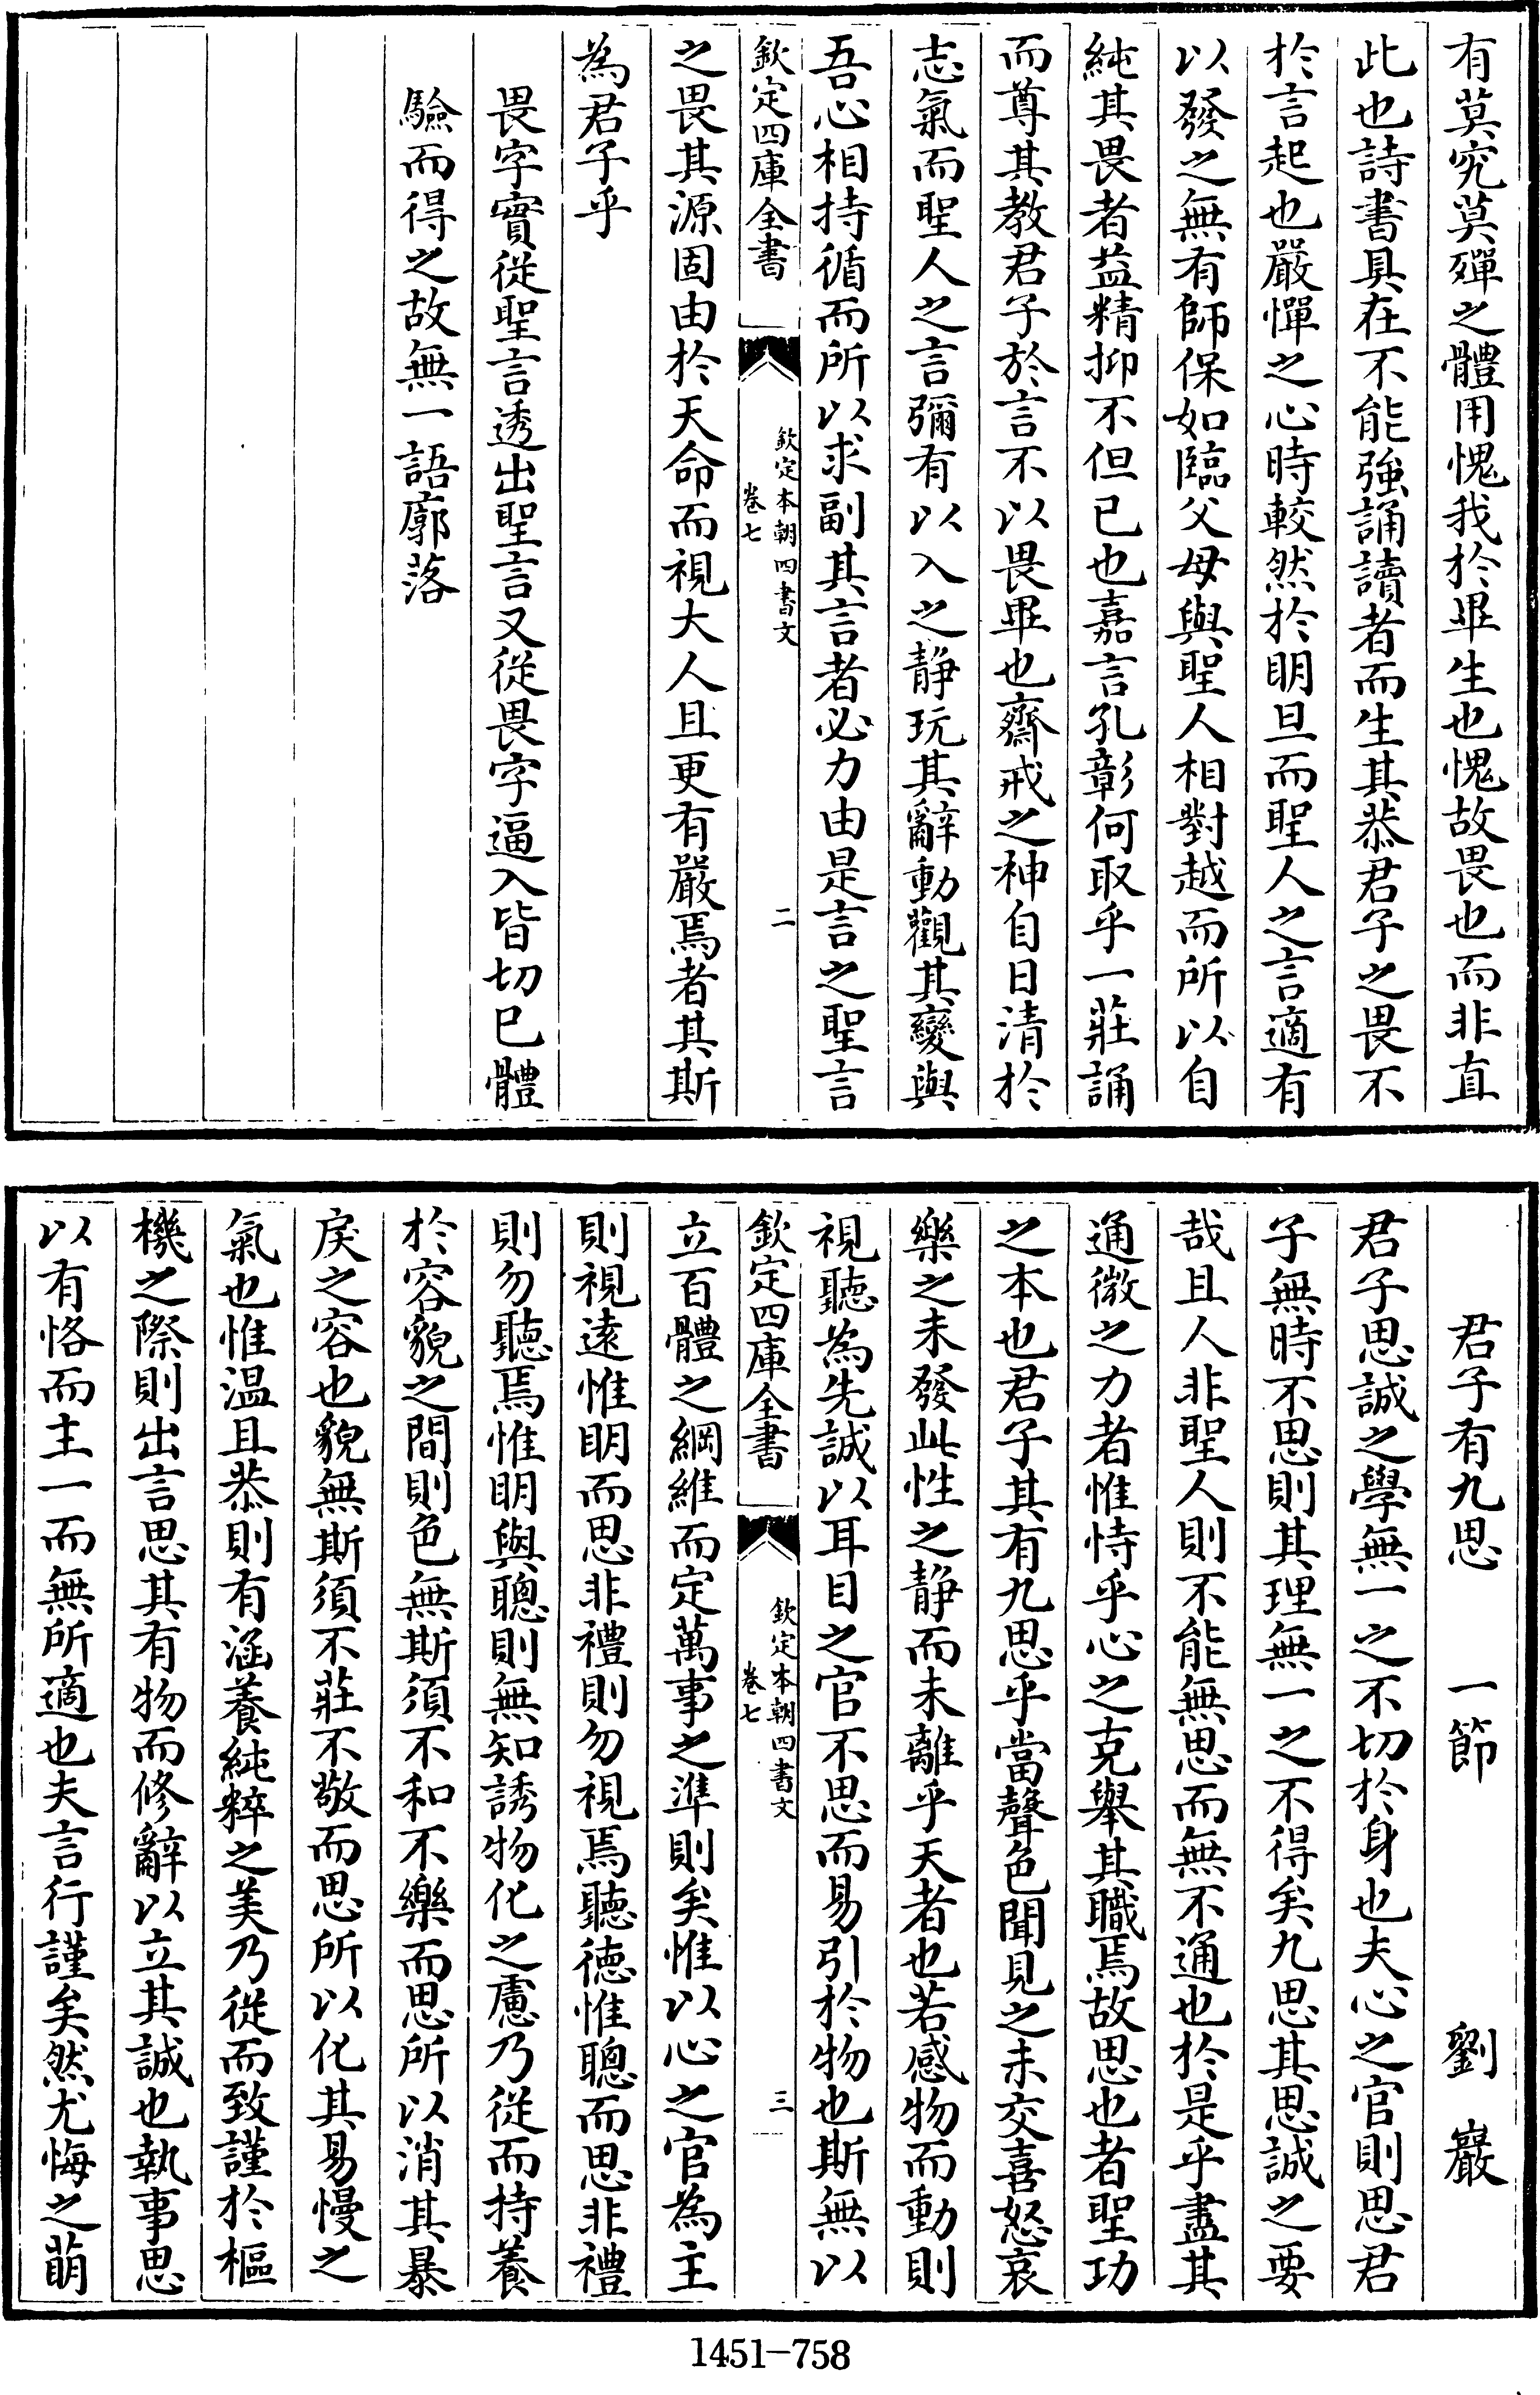 有莫究莫殫之體用愧我於畢生也愧故畏也而非直
此也詩書具在不能強誦讀者而生其恭君子之畏不
於言起也嚴憚之心時較然於明旦而聖人之言適有
以發之無有師保如臨父母與聖人相對越而所以自
純其畏者益精抑不但已也嘉言孔彰何取乎一莊誦
而尊其教君子於言不以畏畢也齋戒之神自日清於
志氣而聖人之言彌有以入之静玩其辭動觀其變與
吾心相持循而所以求副其言者必力由是言之聖言
欽定四庫全書
欽定本朝四書文
卷七
二
之畏其源固由於天命而視大人且更有嚴焉者其斯
為君子乎
畏字實從聖言透出聖言又從畏字逼入皆切已體
驗而得之故無一語廓落
君子有九思 一節 劉巖
君子思誠之學無一之不切於身也夫心之官則思君
子無時不思則其理無一之不得矣九思其思誠之要
哉且人非聖人則不能無思而無不通也於是乎盡其
通微之力者惟恃乎心之克舉其職焉故思也者聖功
之本也君子其有九思乎當聲色聞見之未交喜怒哀
樂之未發此性之静而未離乎天者也若感物而動則
視聽為先誠以耳目之官不思而易引於物也斯無以
欽定四庫全書
欽定本朝四書文
卷七
三
立百體之綱維而定萬事之準則矣惟以心之官為主
則視遠惟明而思非禮則勿視焉聽德惟聰而思非禮
則勿聽焉惟明與聰則無知誘物化之慮乃從而持養
於容貌之間則色無斯須不和不樂而思所以消其暴
戾之容也貌無斯須不莊不敬而思所以化其易慢之
氣也惟温且恭則有涵養純粹之美乃從而致謹於樞
機之際則出言思其有物而修辭以立其誠也執事思
以有恪而主一而無所適也夫言行謹矣然尤悔之萌
1451-758